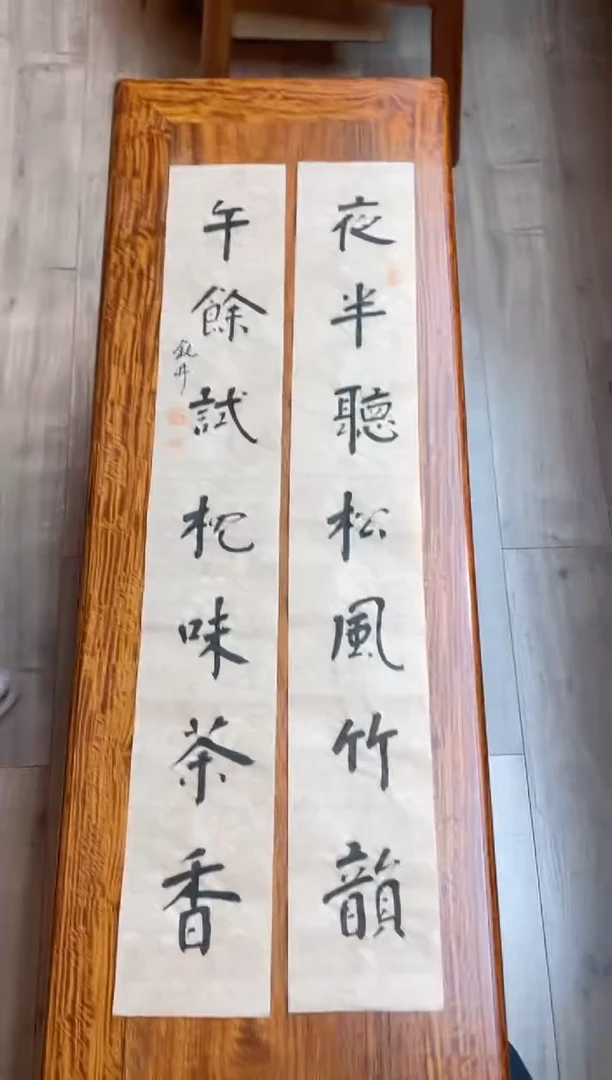 夜半聽松風竹韻
午餘試杞味茶香